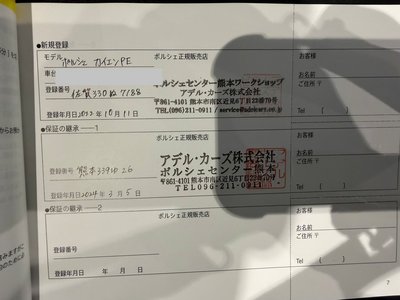 ●新規登録
モデル ポルシェ カイエンPE
ポルシェ正規販売店
お客様
車台
登録番号 佐賀330ぬ7188
登録年月日2022年10月11日
ポルシェセンター熊本ワークショップ
アデル・カーズ株式会社
〒861-4101 熊本市南区近見6丁目22番70号
TEL(096)211-0911 / service@adelcars.co.jp
お名前
ご住所 〒
Tel ( )
●保証の継承――1
ポルシェ正規販売店
お客様
登録番号 熊本339
登録年月日2024年3月5日
アデル・カーズ株式会社
ポルシェセンター熊本
〒861-4101 熊本市南区近見
TEL096-211-0911
お名前
ご住所 〒
Tel ( )
●保証の継承――2
ポルシェ正規販売店
お客様
登録番号
登録年月日 年 月 日
お名前
ご住所 〒
Tel ( )
7